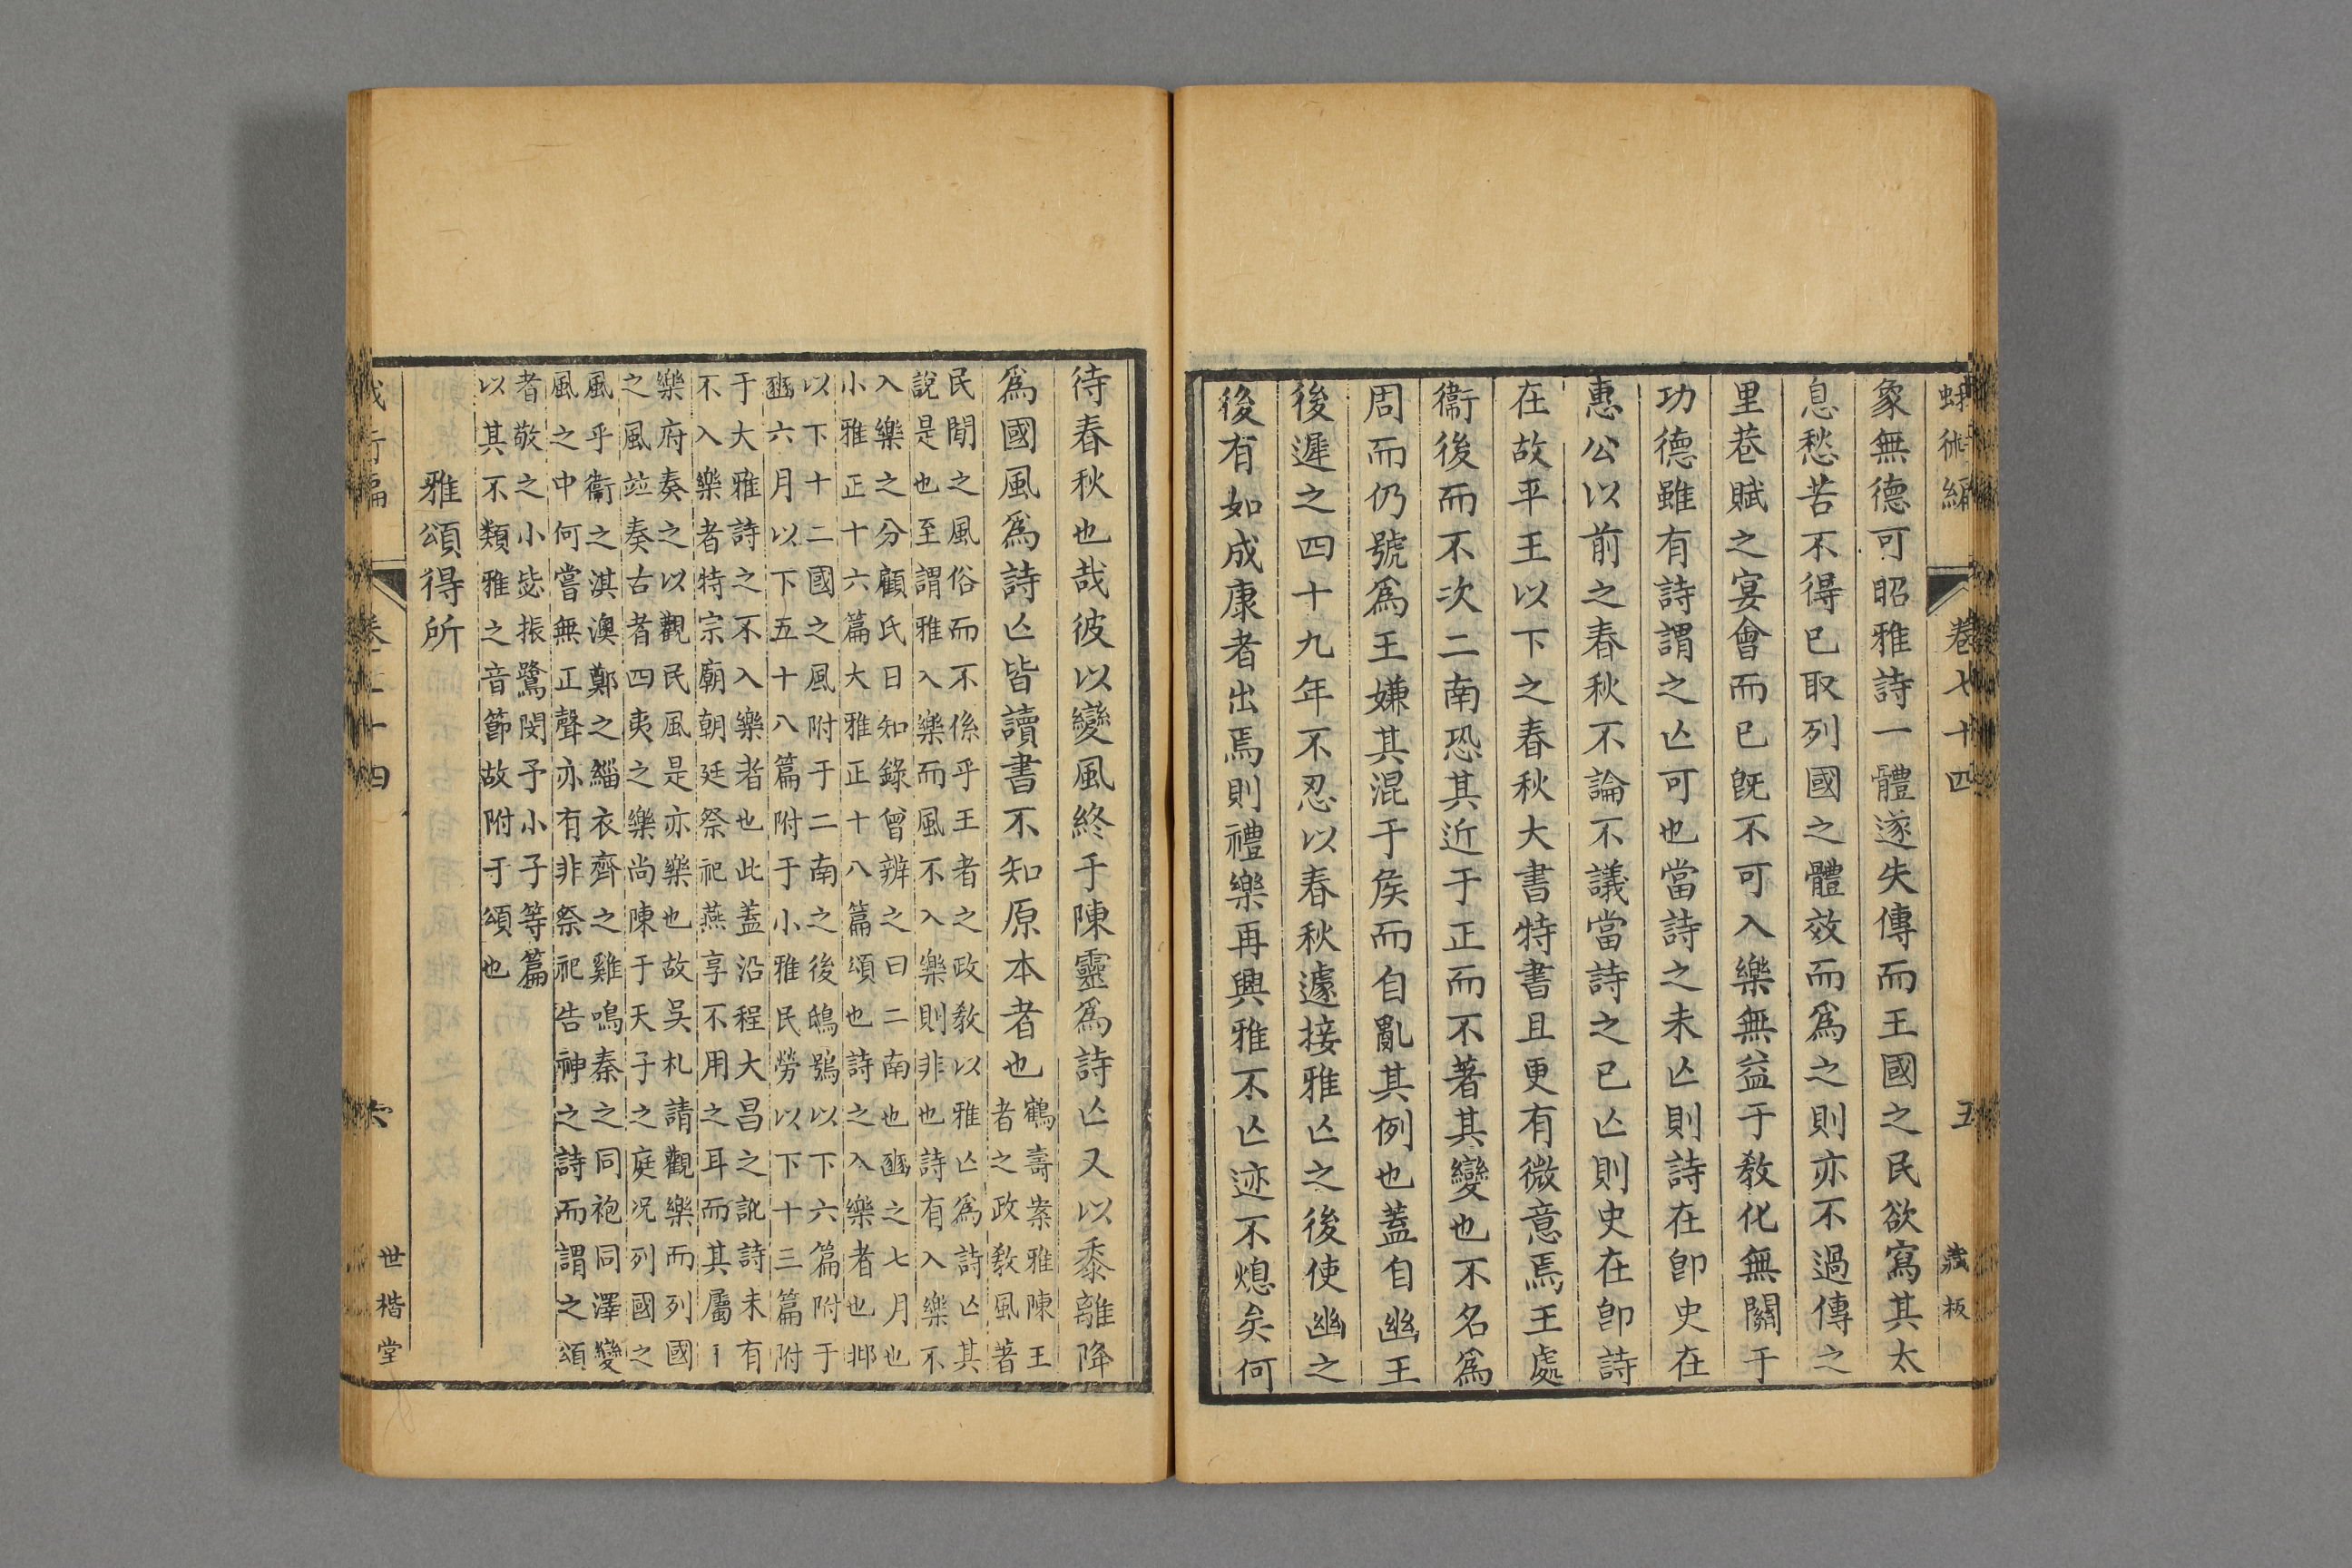 蛾術編 卷七十四 五 藏板
象無德可昭雅詩一體遂失傳而王國之民欲寫其太
息愁苦不得已取列國之體效而爲之則亦不過傳之
里巷賦之宴會而已旣不可入樂無益于教化無關于
功德雖有詩謂之亾可也當詩之未亾則詩在卽史在
惠公以前之春秋不論不議當詩之已亾則史在卽詩
在故平王以下之春秋大書特書且更有微意焉王處
衞後而不次二南恐其近于正而不著其變也不名爲
周而仍號爲王嫌其混于矦而自亂其例也蓋自幽王
後遲之四十九年不忍以春秋遽接雅亾之後使幽之
後有如成康者出焉則禮樂再興雅不亾迹不熄矣何
待春秋也哉彼以變風終于陳靈爲詩亾又以黍離降
爲國風爲詩亾皆讀書不知原本者也
鶴壽案雅陳王
者之政教風著
民間之風俗而不係乎王者之政教以雅亾爲詩亾其
說是也至謂雅入樂而風不入樂則非也詩有入樂不
入樂之分顧氏日知錄曾辨之曰二南也豳之七月也
小雅正十六篇大雅正十八篇頌也詩之入樂者也邶
以下十二國之風附于二南之後鴟鴞以下六篇附于
豳六月以下五十八篇附于小雅民勞以下十三篇附
于大雅詩之不入樂者也此蓋沿程大昌之訛詩未有
不入樂者特宗廟朝廷祭祀燕享不用之耳而其屬
樂府奏之以觀民風是亦樂也故吳札請觀樂而列國
之風竝奏古者四夷之樂尚陳于天子之庭况列國之
風乎衞之淇澳鄭之緇衣齊之雞鳴秦之同袍同澤變
風之中何嘗無正聲亦有非祭祀告神之詩而謂之頌
者敬之小毖振鷺閔予小子等篇
以其不類雅之音節故附于頌也
雅頌得所
卷七十四 六 世楷堂